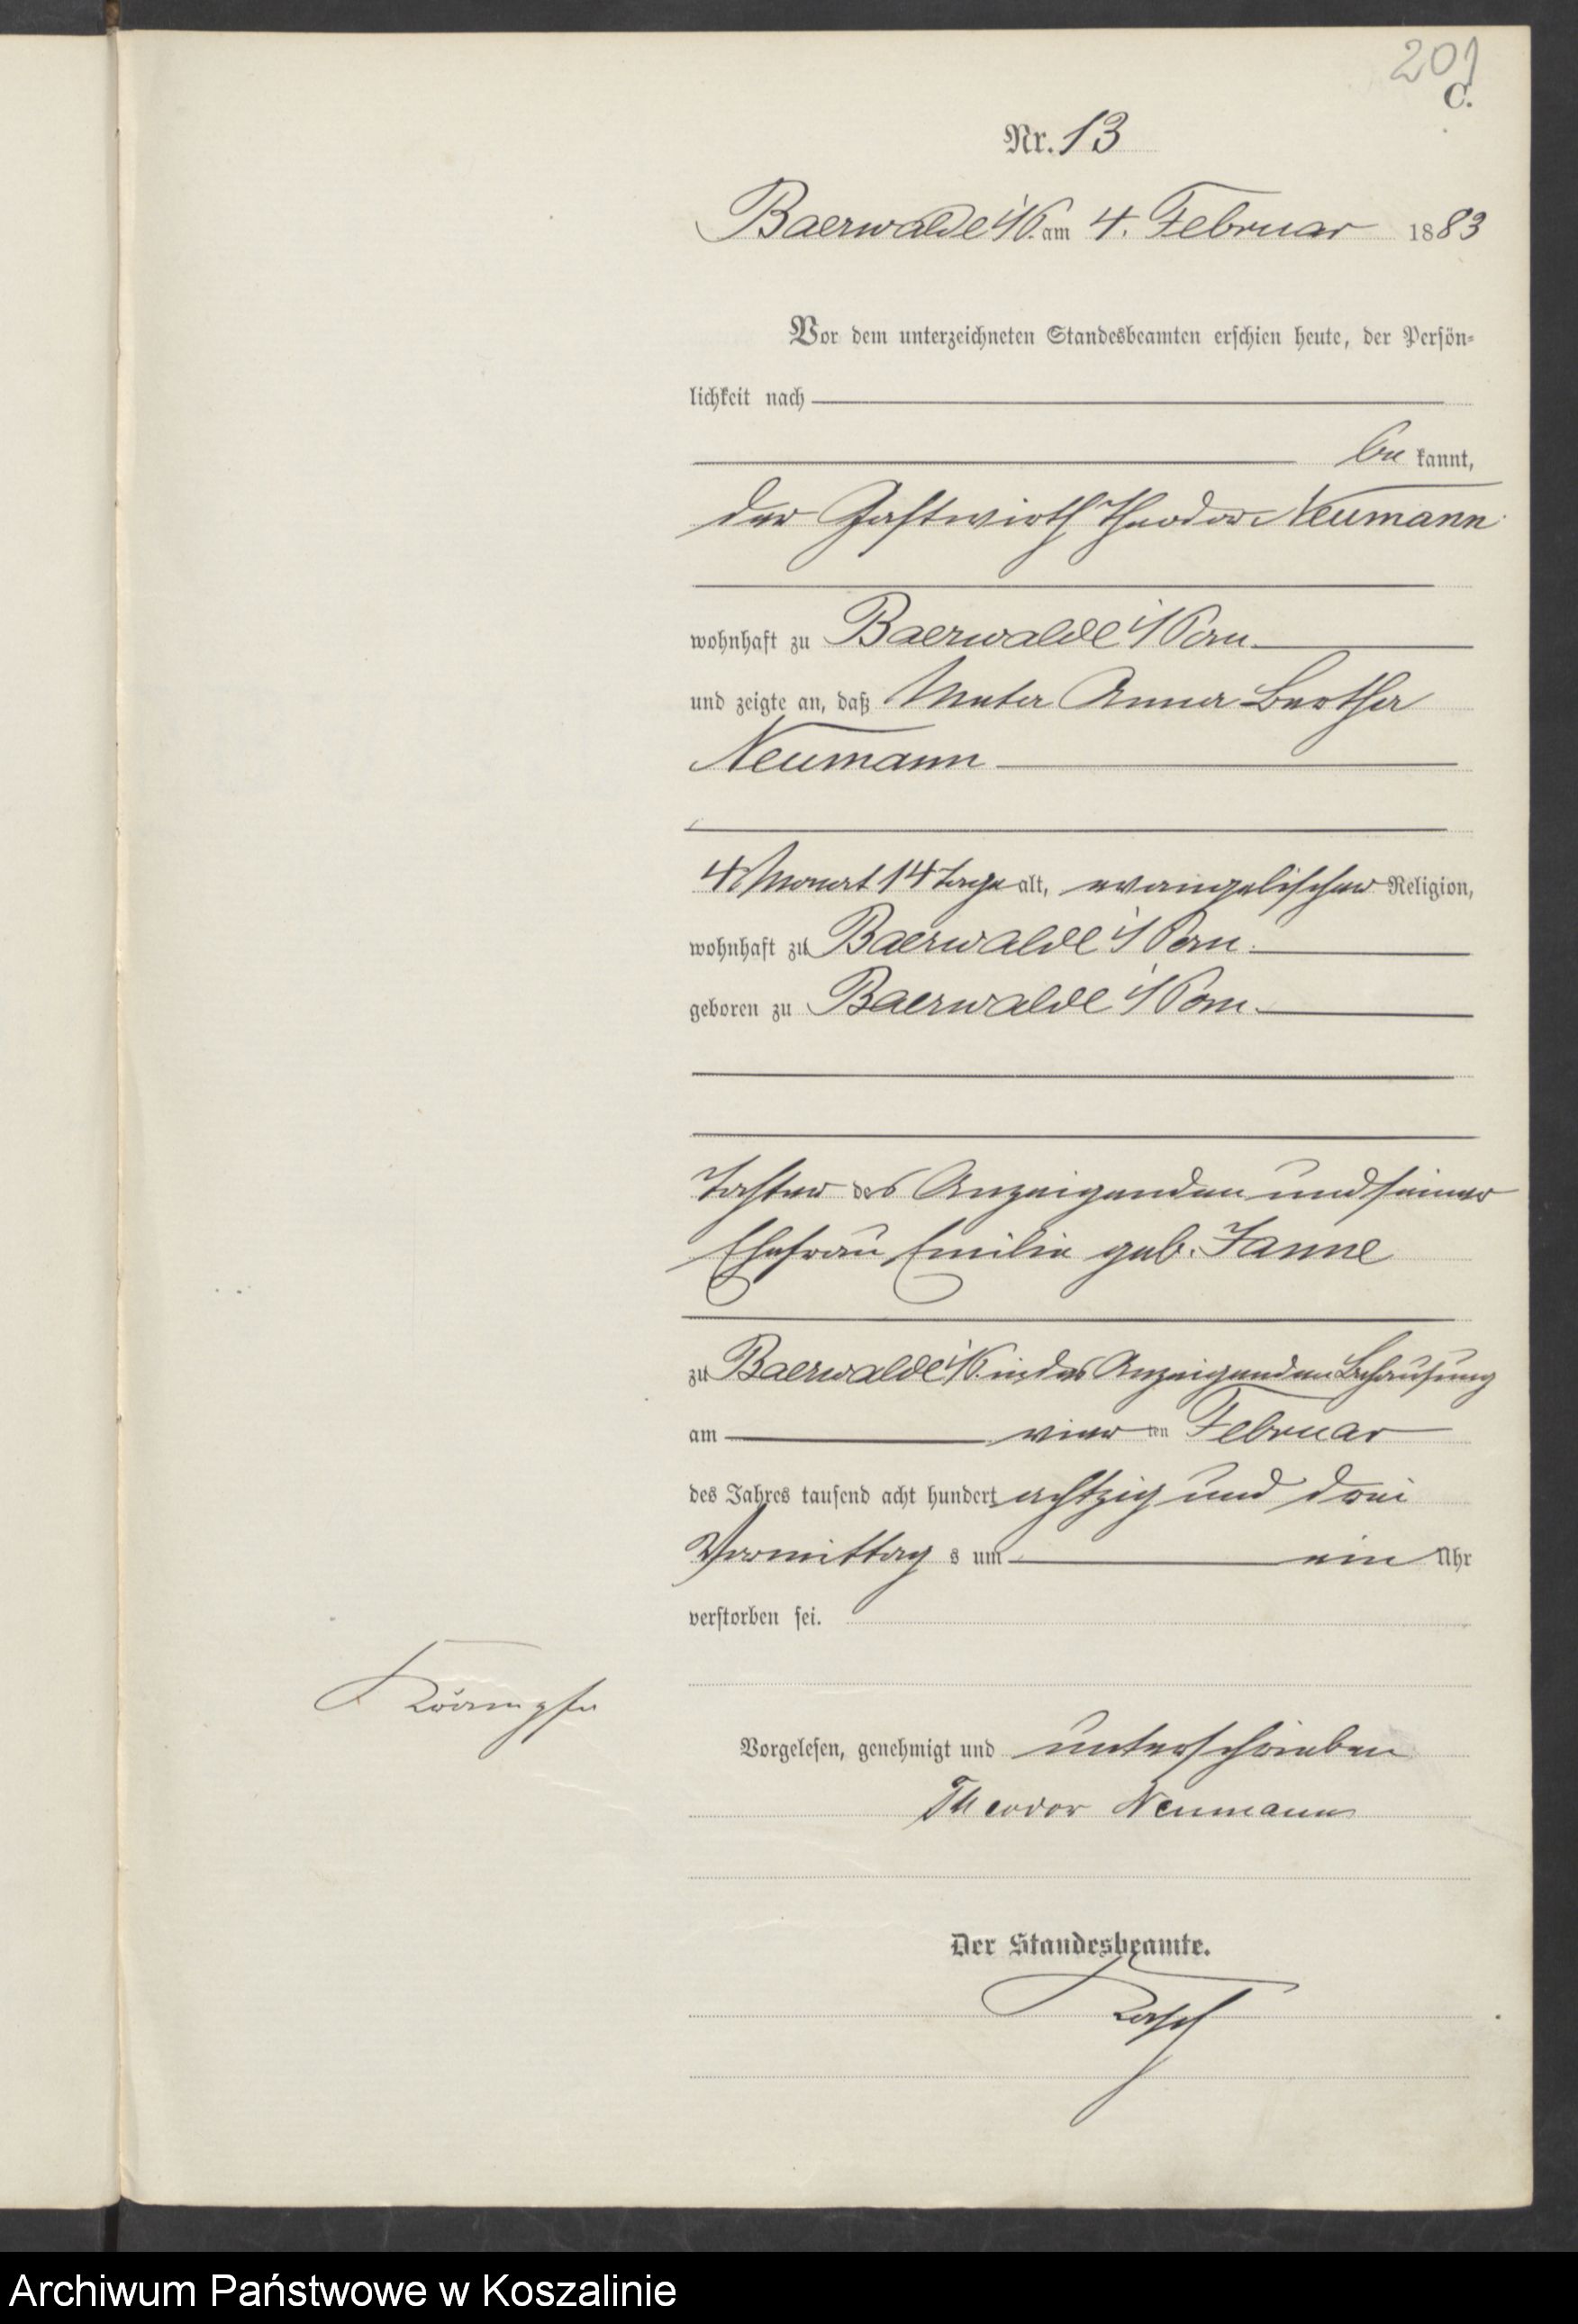 201
C.
Nr. 13
Baerwalde i/P. am 4. Februar 1883
Vor dem unterzeichneten Standesbeamten erschien heute, der Persön-
lichkeit nach
be kannt,
der Gastwirth Theodor Neumann
wohnhaft zu Baerwalde i/Pom
und zeigte an, daß Meta Anna Bertha
Neumann
4 Monat 14 Tage alt, evangelischer Religion,
wohnhaft zu Baerwalde i/Pom.
geboren zu Baerwalde i/Pom.
Tochter des Anzeigenden und seiner
Ehefrau Emilie geb. Janne
zu Baerwalde i/P. in des Anzeigenden Behausung
am vier ten Februar
des Jahres tausend acht hundert achtzig und drei
Vormittag s um ein Uhr
verstorben sei.
Krämpfe
Vorgelesen, genehmigt und unterschrieben
Theodor Neumann
Der Standesbeamte.
Archiwum Państwowe w Koszalinie